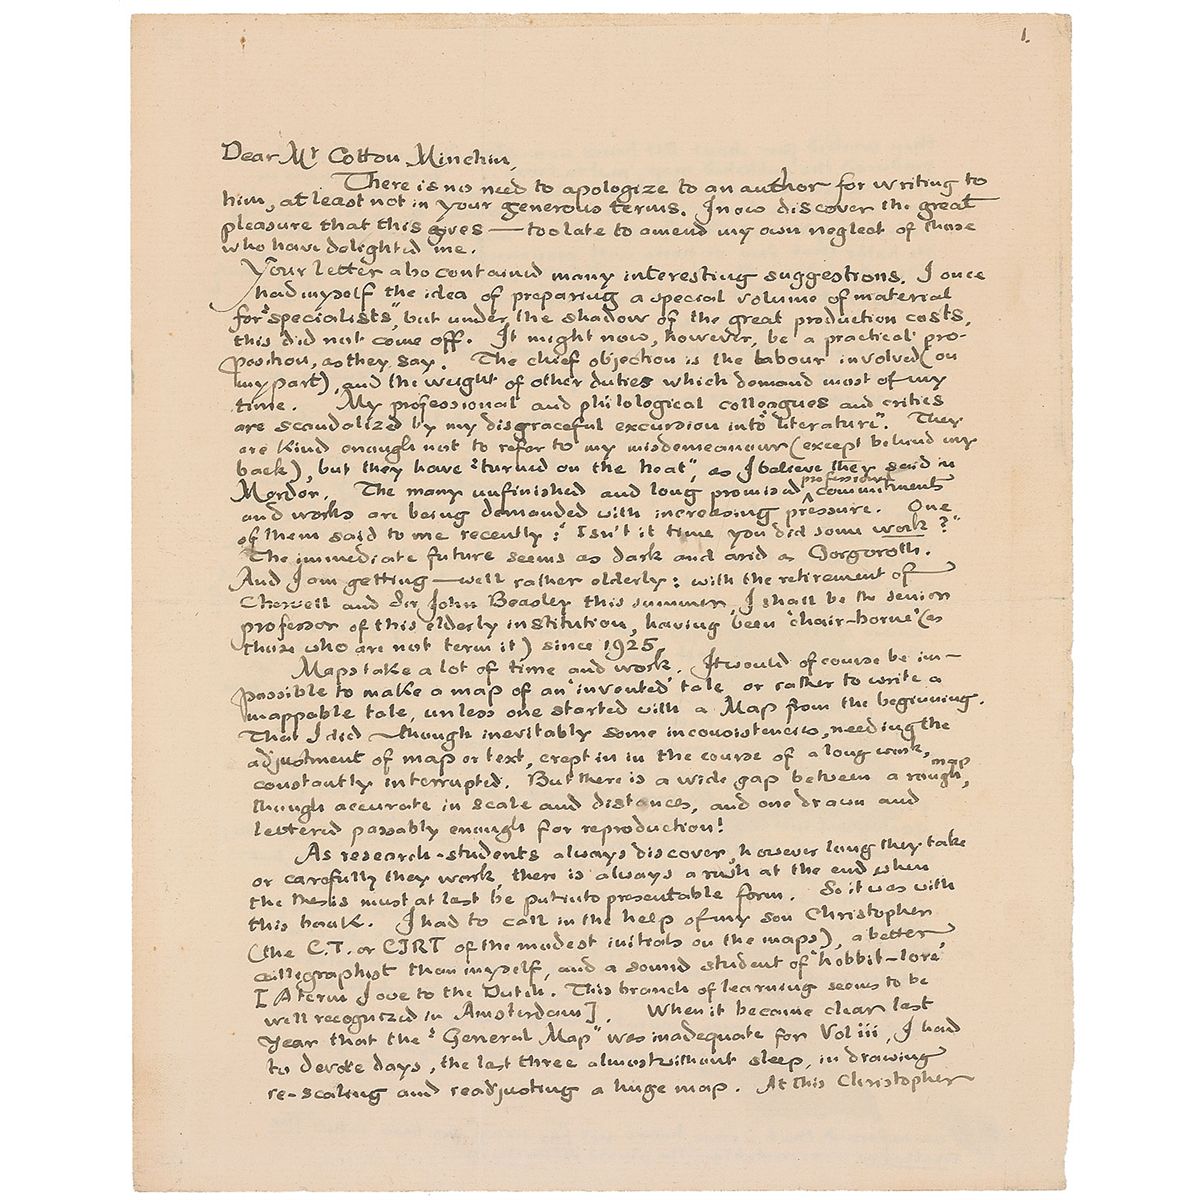 1.
Dear Mr Cotton Minchin,
There is no need to apologize to an author for writing to
him, at least not in your generous terms. I now discover the great
pleasure that this gives — too late to amend my own neglect of those
who have delighted me.
Your letter also contained many interesting suggestions. I once
had myself the idea of preparing a special volume of material
for "specialists", but under the shadow of the great production costs,
this did not come off. It might now, however, be a practical pro-
position, as they say. The chief objection is the labour involved (on
my part), and the weight of other duties which demand most of my
time. My professional and philological colleagues and critics
are scandalized by my disgraceful excursion into "literature". They
are kind enough not to refer to my misdemeanour (except behind my
back), but they have "turned on the heat", as I believe they said in
Mordor. The many unfinished and long promised professional commitments
and works are being demanded with increasing pressure. One
of them said to me recently: "Isn't it time you did some work?"
The immediate future seems as dark and arid as Gorgoroth.
And I am getting — well rather elderly: with the retirement of
Cherwell and Sir John Beazley this summer, I shall be the senior
professor of this elderly institution, having been 'chair-borne' (as
those who are not term it) since 1925.
Maps take a lot of time and work. It would of course be im-
possible to make a map of an 'invented' tale, or rather to write a
mappable tale, unless one started with a Map from the beginning.
That I did — though inevitably some inconsistencies, needing the
adjustment of map or text, crept in in the course of a long work,
constantly interrupted. But there is a wide gap between a rough map,
though accurate in scale and distances, and one drawn and
lettered passably enough for reproduction!
As research-students always discover, however long they take
or carefully they work, there is always a rush at the end, when
the thesis must at last be put into presentable form. So it was with
this book. I had to call in the help of my son Christopher
(the C.T. or CJRT of the modest initials on the maps), a better
calligraphist than myself, and a sound student of 'hobbit-lore'
[A term I owe to the Dutch. This branch of learning seems to be
well recognized in Amsterdam]. When it became clear last
year that the "General Map" was inadequate for Vol iii, I had
to devote days, the last three almost without sleep, in drawing
re-scaling and readjusting a huge map. At this Christopher